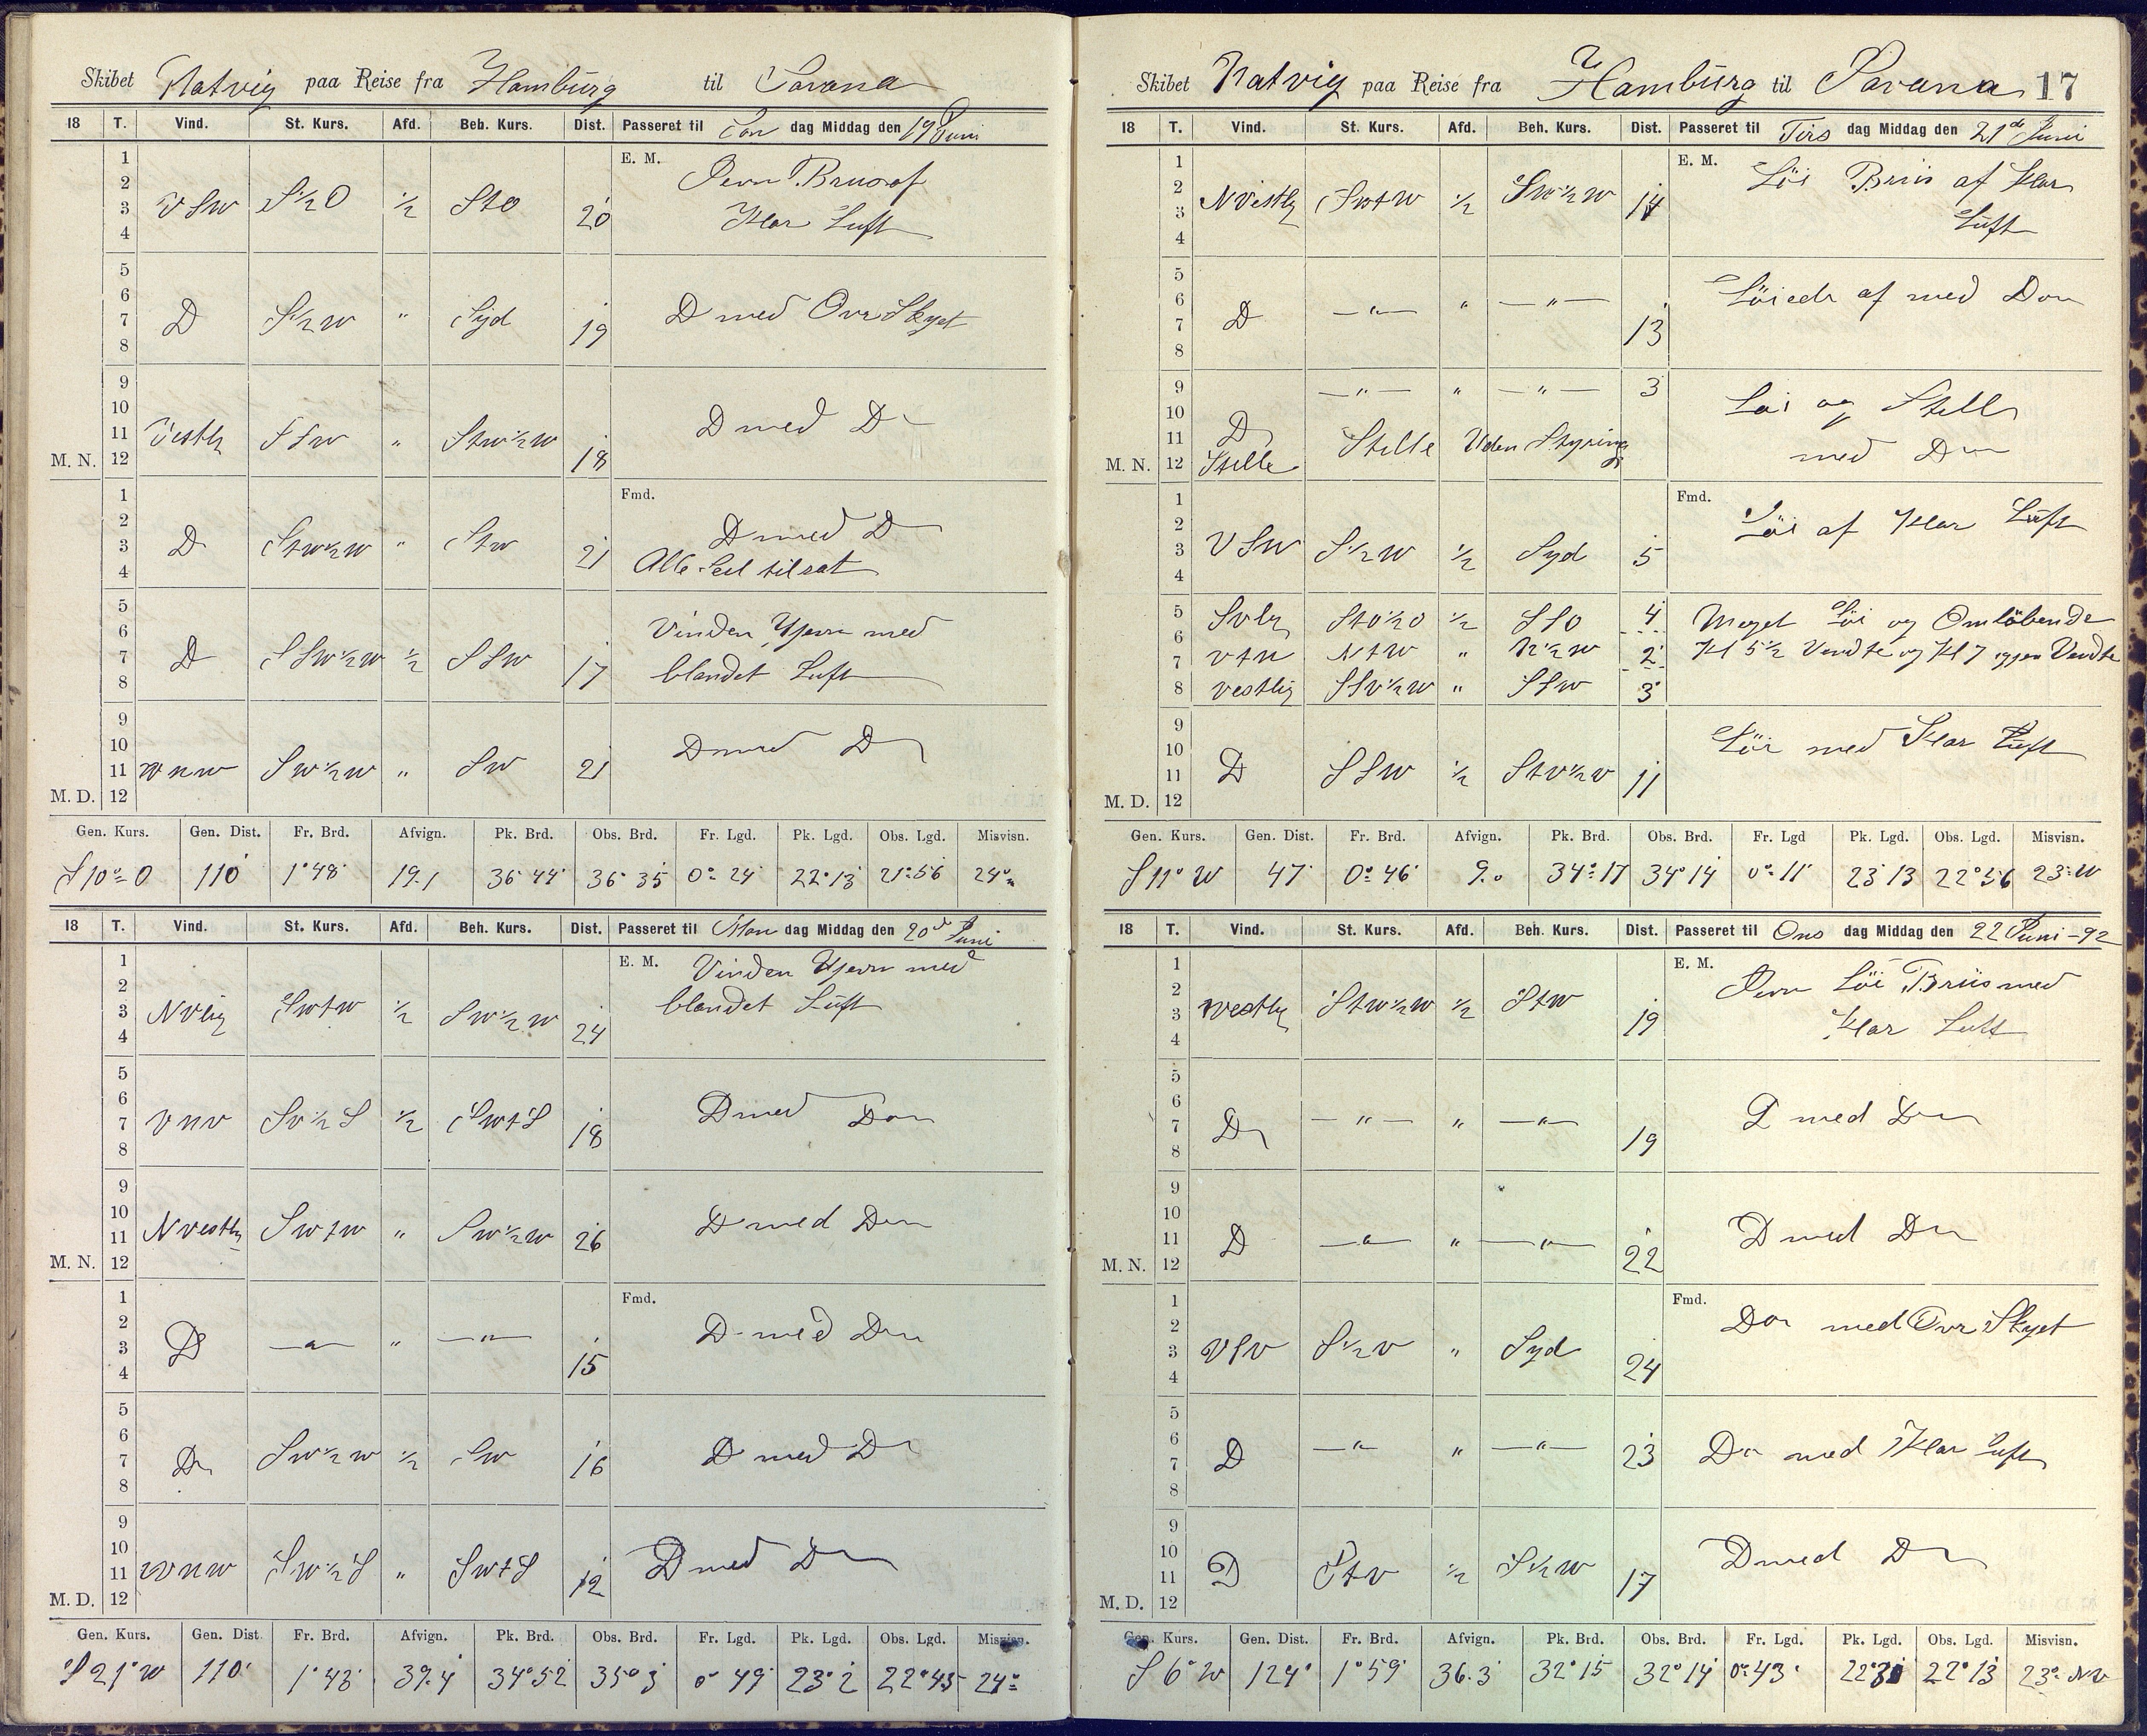 Skibet Hatvig paa Reise fra Hamburg til Savana
18 T. Vind. St. Kurs. Afd. Beh. Kurs. Dist. Passeret til Søn dag Middag den 19 Juni
1 E. M.
2
3 VSW S½O ½ StO 20 Klar Luft
4
5
6
7 D S½W " Syd 19 D med Over Skyet
8
9
10
11 Vestlig SSW " StW½W 18 D med Do
M. N. 12
1 Fmd.
2
3 D StW½W " StW 21 D med D
4 Alle Seil tilsat
5
6 Vinden Ujevn med
7 D SSW½W ½ SSW 17 blandet Luft
8
9
10
11 WNW SW½W " SW 21 D med D
M. D. 12
Gen. Kurs. Gen. Dist. Fr. Brd. Afvign. Pk. Brd. Obs. Brd. Fr. Lgd. Pk. Lgd. Obs. Lgd. Misvisn.
S 10° O 110 1°48' 19.1 36°44' 36°35 0°24' 22°13' 21°56 24°
18 T. Vind. St. Kurs. Afd. Beh. Kurs. Dist. Passeret til Man dag Middag den 20de Juni
1 E. M. Vinden Ujevn med
2 blandet Luft
3 NVlig SWtW ½ SW½W 24
4
5
6
7 VNV SV½S ½ SWtS 18 D med Do
8
9
10
11 NVestlig SWtW " SW½W 26 D med Do
M. N. 12
1 Fmd.
2
3 D — " — " — " — 15 D med Do
4
5
6
7 Do SW½W ½ SW 16 D med Do
8
9
10
11 WNW SW½S " SWtS 12 D med Do
M. D. 12
Gen. Kurs. Gen. Dist Fr. Brd. Afvign. Pk. Brd. Obs. Brd. Fr. Lgd. Pk. Lgd. Obs. Lgd. Misvisn.
S 21° W 110' 1°43' 39.4 34°52' 35°3' 0°49' 23°2' 22°45 24°
Skibet Hatvig paa Reise fra Hamburg til Savana 17
18 T. Vind. St. Kurs. Afd. Beh. Kurs. Dist. Passeret til Tirs dag Middag den 21de Juni
1 E. M. Löi Briis af Klar
2 Luft
3 NVestlig SWtW ½ SW½W 14
4
5
6 Löiede af med Do
7 D — " — " — " — 13
8
9 — " — " — " — 3
10 Löi og Stille
11 D Stille Uden Styring med Do
M. N. 12 Stille
1 Fmd. Löi af Klar Luft
2
3 VSW S½W ½ Syd 5
4
5 SVlig StO½O ½ SSO 4 Meget Löi og Omlöbende
6 VtN NtW " N½W 2 Kl 5½ Vendte og Kl 7 igjen Vendte
7
8 Vestlig SSV½W " SSW 3
9 Löi med Klar Luft
10
11 D SSW ½ StV½V 11
M. D. 12
Gen. Kurs. Gen. Dist. Fr. Brd. Afvign. Pk. Brd. Obs. Brd. Fr. Lgd Pk. Lgd. Obs. Lgd. Misvisn.
S 11° W 47' 0°46' 9.0 34°17 34°14 0°11' 23°13 22°56 23°W
18 T. Vind. St. Kurs. Afd. Beh. Kurs. Dist. Passeret til Ons dag Middag den 22 Juni - 92
1 E. M. Jevn Löi Briis med
2 Klar Luft
3 Westlig StW½W ½ StW 19
4
5
6
7 Do — " — " — " — 19 D med Do
8
9
10
11 D — " — " — " — 22 D med Do
M. N. 12
1 Fmd. Do med Over Skyet
2
3 VSV S½V " Syd 24
4
5
6
7 D — " — " — " — 23 Do med Klar Luft
8
9
10
11 D StV ½ S½W 17 D med Do
M. D. 12
Gen. Kurs. Gen. Dist. Fr. Brd. Afvign. Pk. Brd. Obs. Brd. Fr. Lgd. Pk. Lgd. Obs. Lgd. Misvisn.
S 6° W 124' 1°59' 36.3 32°15 32°14 0°43' 22°13 23° NV